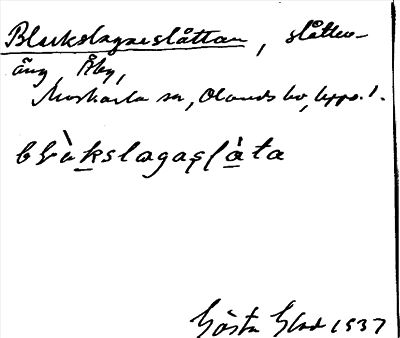 Blackslagareslåttan, slåtter-
äng Åby,
Morkarla sn, Olands hd, Uppl.
blà̠kslagaslà̠ta
Gösta 1937